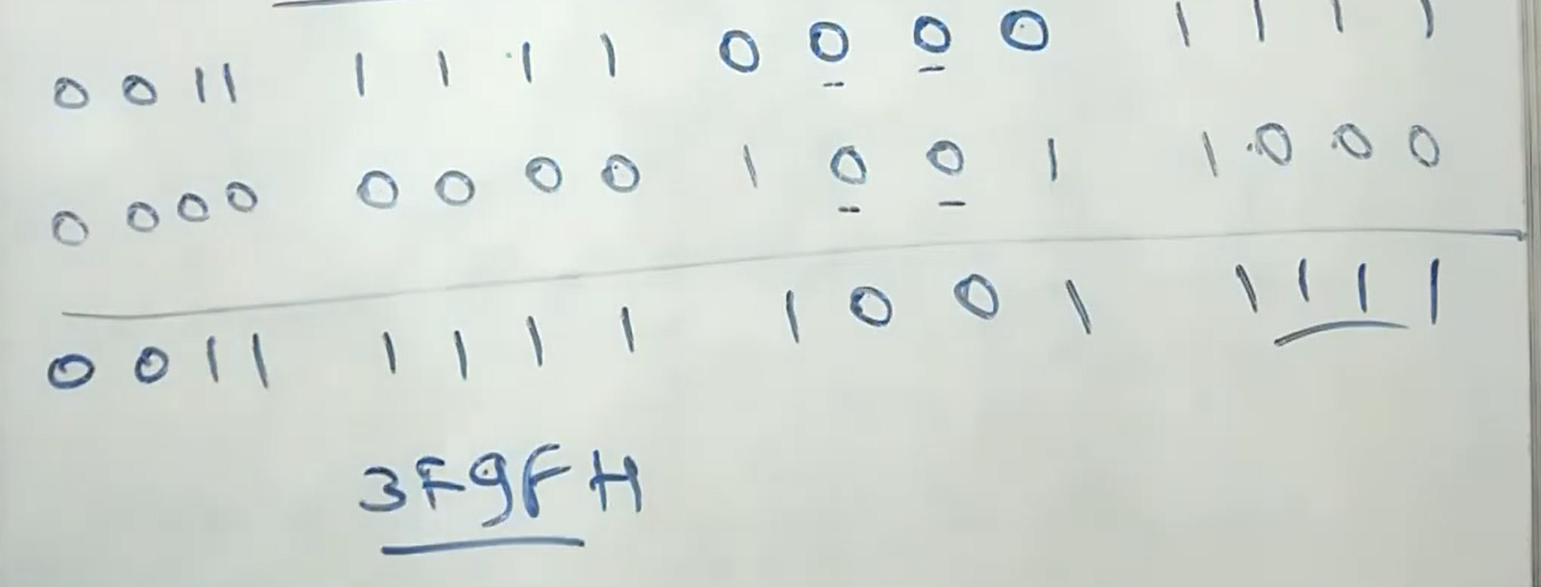 0 0 1 1 1 1 1 1 0 0 0 0 1 1 1 1
0 0 0 0 0 0 0 0 1 0 0 1 1 0 0 0
0 0 1 1 1 1 1 1 1 0 0 1 1 1 1 1
3F9FH